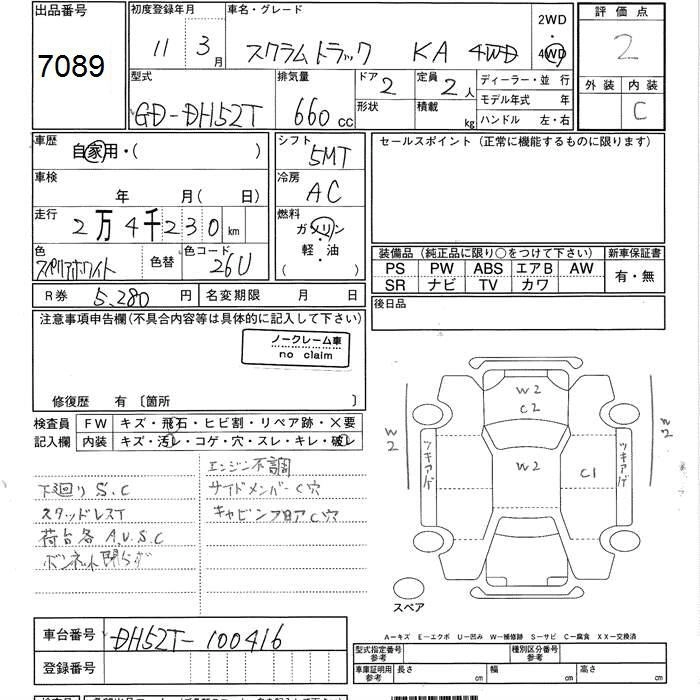 出品番号
7089
初度登録年月
11 3月
車名・グレード
スクラムトラック KA 4WD
2WD
4WD
評価点
2
外装 内装
C
型式
GD-DH52T
排気量
660cc
ドア
2
形状
定員
2人
積載
kg
ディーラー・並 行
モデル年式 年
ハンドル 左・右
車歴
自家用・( )
車検
年 月( 日)
走行
2万4千230km
色
スペリアホワイト
色替
色コード
26U
シフト
5MT
冷房
AC
燃料
ガソリン
軽・油
( )
セールスポイント(正常に機能するものに限ります)
装備品(純正品に限り○をつけて下さい)
新車保証書
PS PW ABS エアB AW
SR ナビ TV カワ
有・無
R券 5,280円
名変期限 月 日
後日品
注意事項申告欄(不具合内容等は具体的に記入して下さい)
ノークレーム車
no claim
修復歴 有〔箇所 〕
検査員
記入欄
FW キズ・飛石・ヒビ割・リペア跡・×要
内装 キズ・汚レ・コゲ・穴・スレ・キレ・破レ
エンジン不調
下廻りS.C
サイドメンバーC穴
スタッドレスT
キャビンフロアC穴
荷台各A.U.S.C
W2
C2
W2
W2
W2
C1
ツキアゲ
ツキアゲ
スペア
A－キズ E－エクボ U－凹み W－補修跡 S－サビ C－腐食 XX－交換済
車台番号
DH52T-100416
登録番号
型式指定番号
参考
種別区分番号
参考
車庫証明用
参考
長さ cm
幅 cm
高さ cm